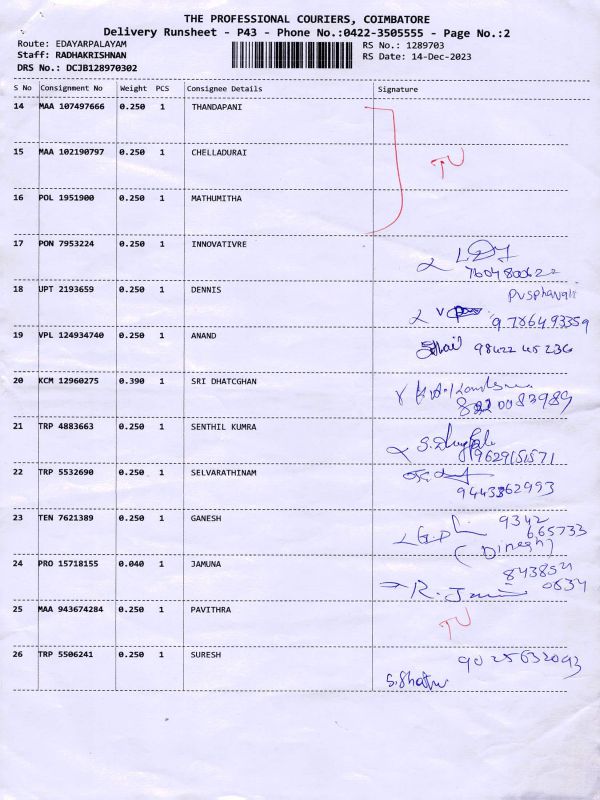 THE PROFESSIONAL COURIERS, COIMBATORE
Delivery Runsheet - P43 - Phone No.:0422-3505555 - Page No.:2
Route: EDAYARPALAYAM RS No.: 1289703
Staff: RADHAKRISHNAN RS Date: 14-Dec-2023
DRS No.: DCJB128970302
S No Consignment No Weight PCS Consignee Details Signature
14 MAA 107497666 0.250 1 THANDAPANI
15 MAA 102190797 0.250 1 CHELLADURAI
TU
16 POL 1951900 0.250 1 MATHUMITHA
17 PON 7953224 0.250 1 INNOVATIVRE
7604800622
18 UPT 2193659 0.250 1 DENNIS
9786493359
19 VPL 124934740 0.250 1 ANAND
98422 45 236
20 KCM 12960275 0.390 1 SRI DHATCGHAN
21 TRP 4883663 0.250 1 SENTHIL KUMRA
9629151571
22 TRP 5532690 0.250 1 SELVARATHINAM
23 TEN 7621389 0.250 1 GANESH
9342
665733
(Dinesh)
24 PRO 15718155 0.040 1 JAMUNA
0634
25 MAA 943674284 0.250 1 PAVITHRA
TU
26 TRP 5506241 0.250 1 SURESH
90 25632093